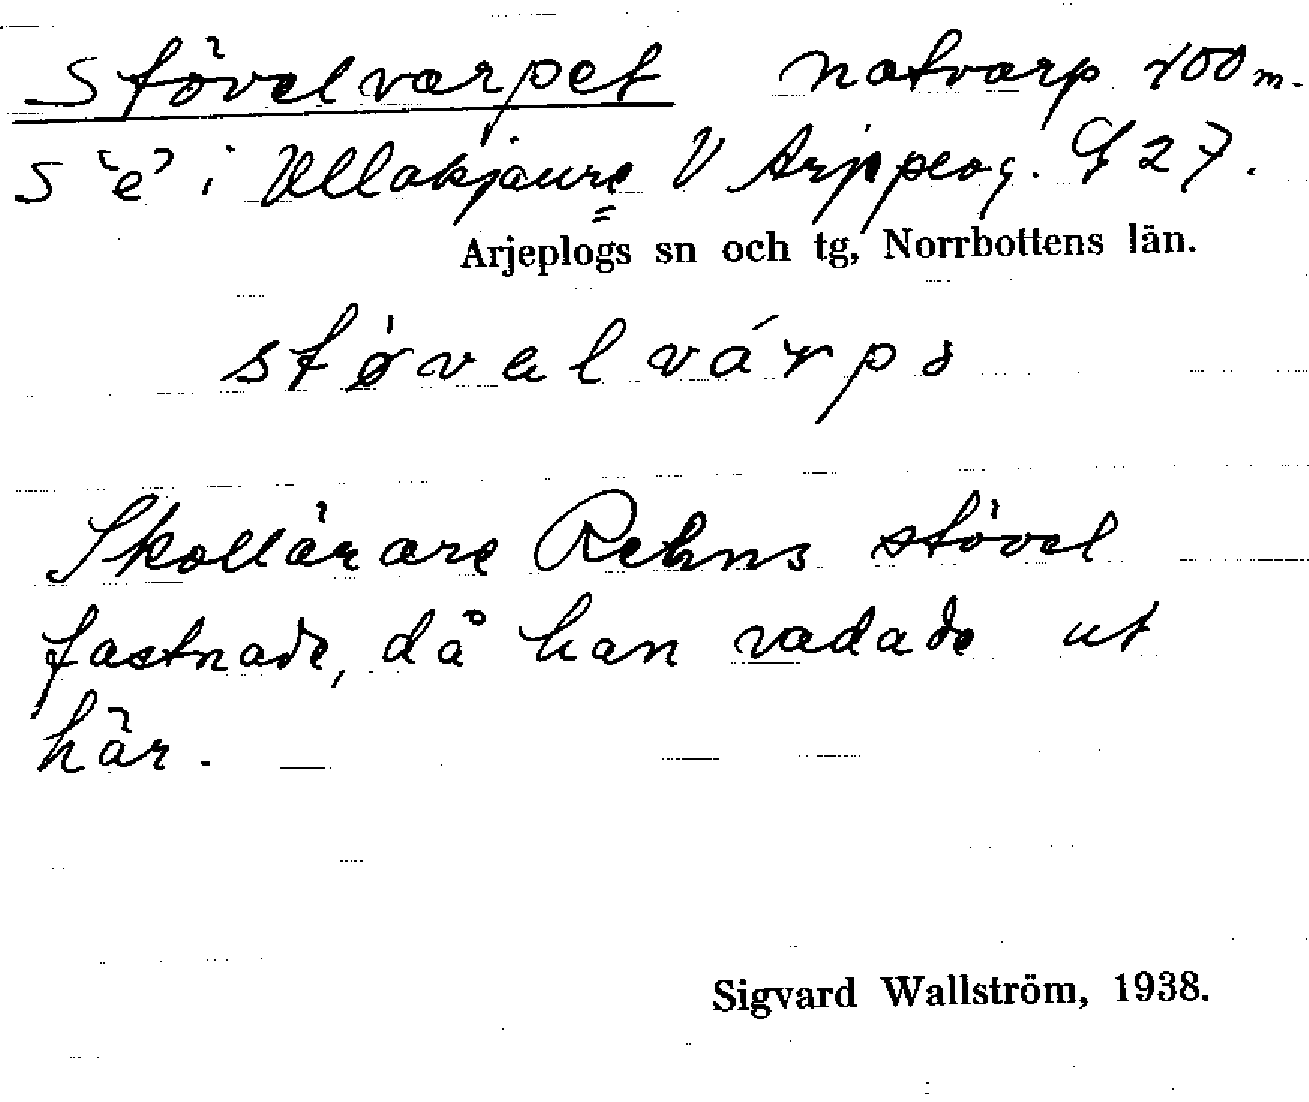 Stövelvarpet notvarp 400 m.
S "e" i Ullakjaure V Arjepeog. G 27.
Arjeplogs sn och tg, Norrbottens län.
støvelvárpə
Skollärare Rehns stövel
fastnade, då han vadade ut
här.
Sigvard Wallström, 1938.